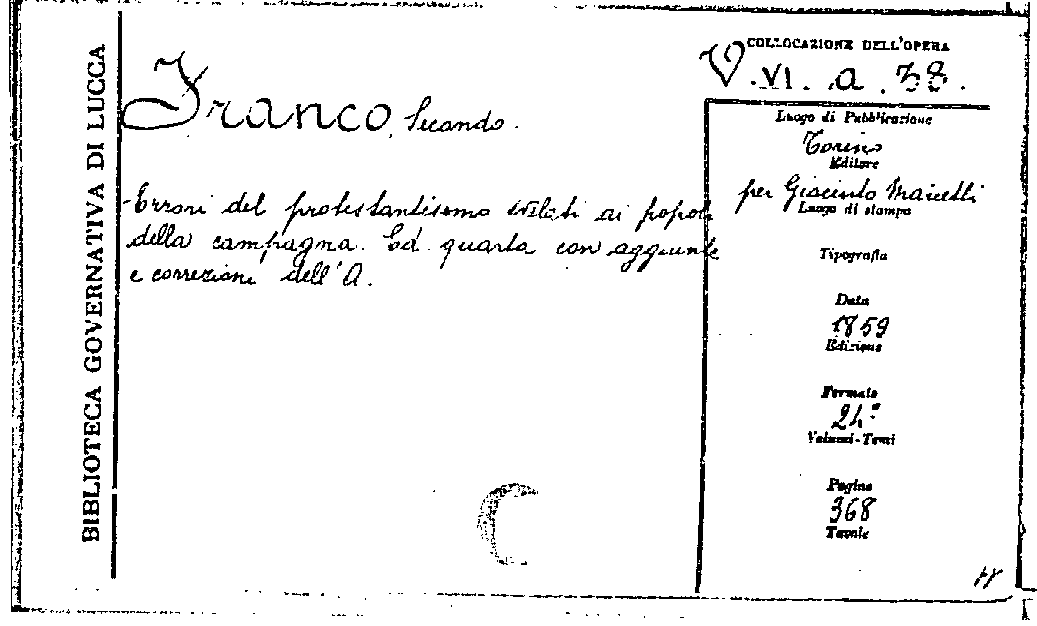 BIBLIOTECA GOVERNATIVA DI LUCCA
Franco, Secondo.
Errori del protestantismo svelati ai popoli
della campagna. Ed quarta con aggiunte
e correzioni dell'A.
COLLOCAZIONE DELL'OPERA
V. VI. a. 38.
Luogo di Pubblicazione
Torino
Editore
per Giacinto Marietti
Luogo di stampa
Tipografia
Data
1859
Edizione
Formato
24°
Volumi-Tomi
Pagine
368
Tavole